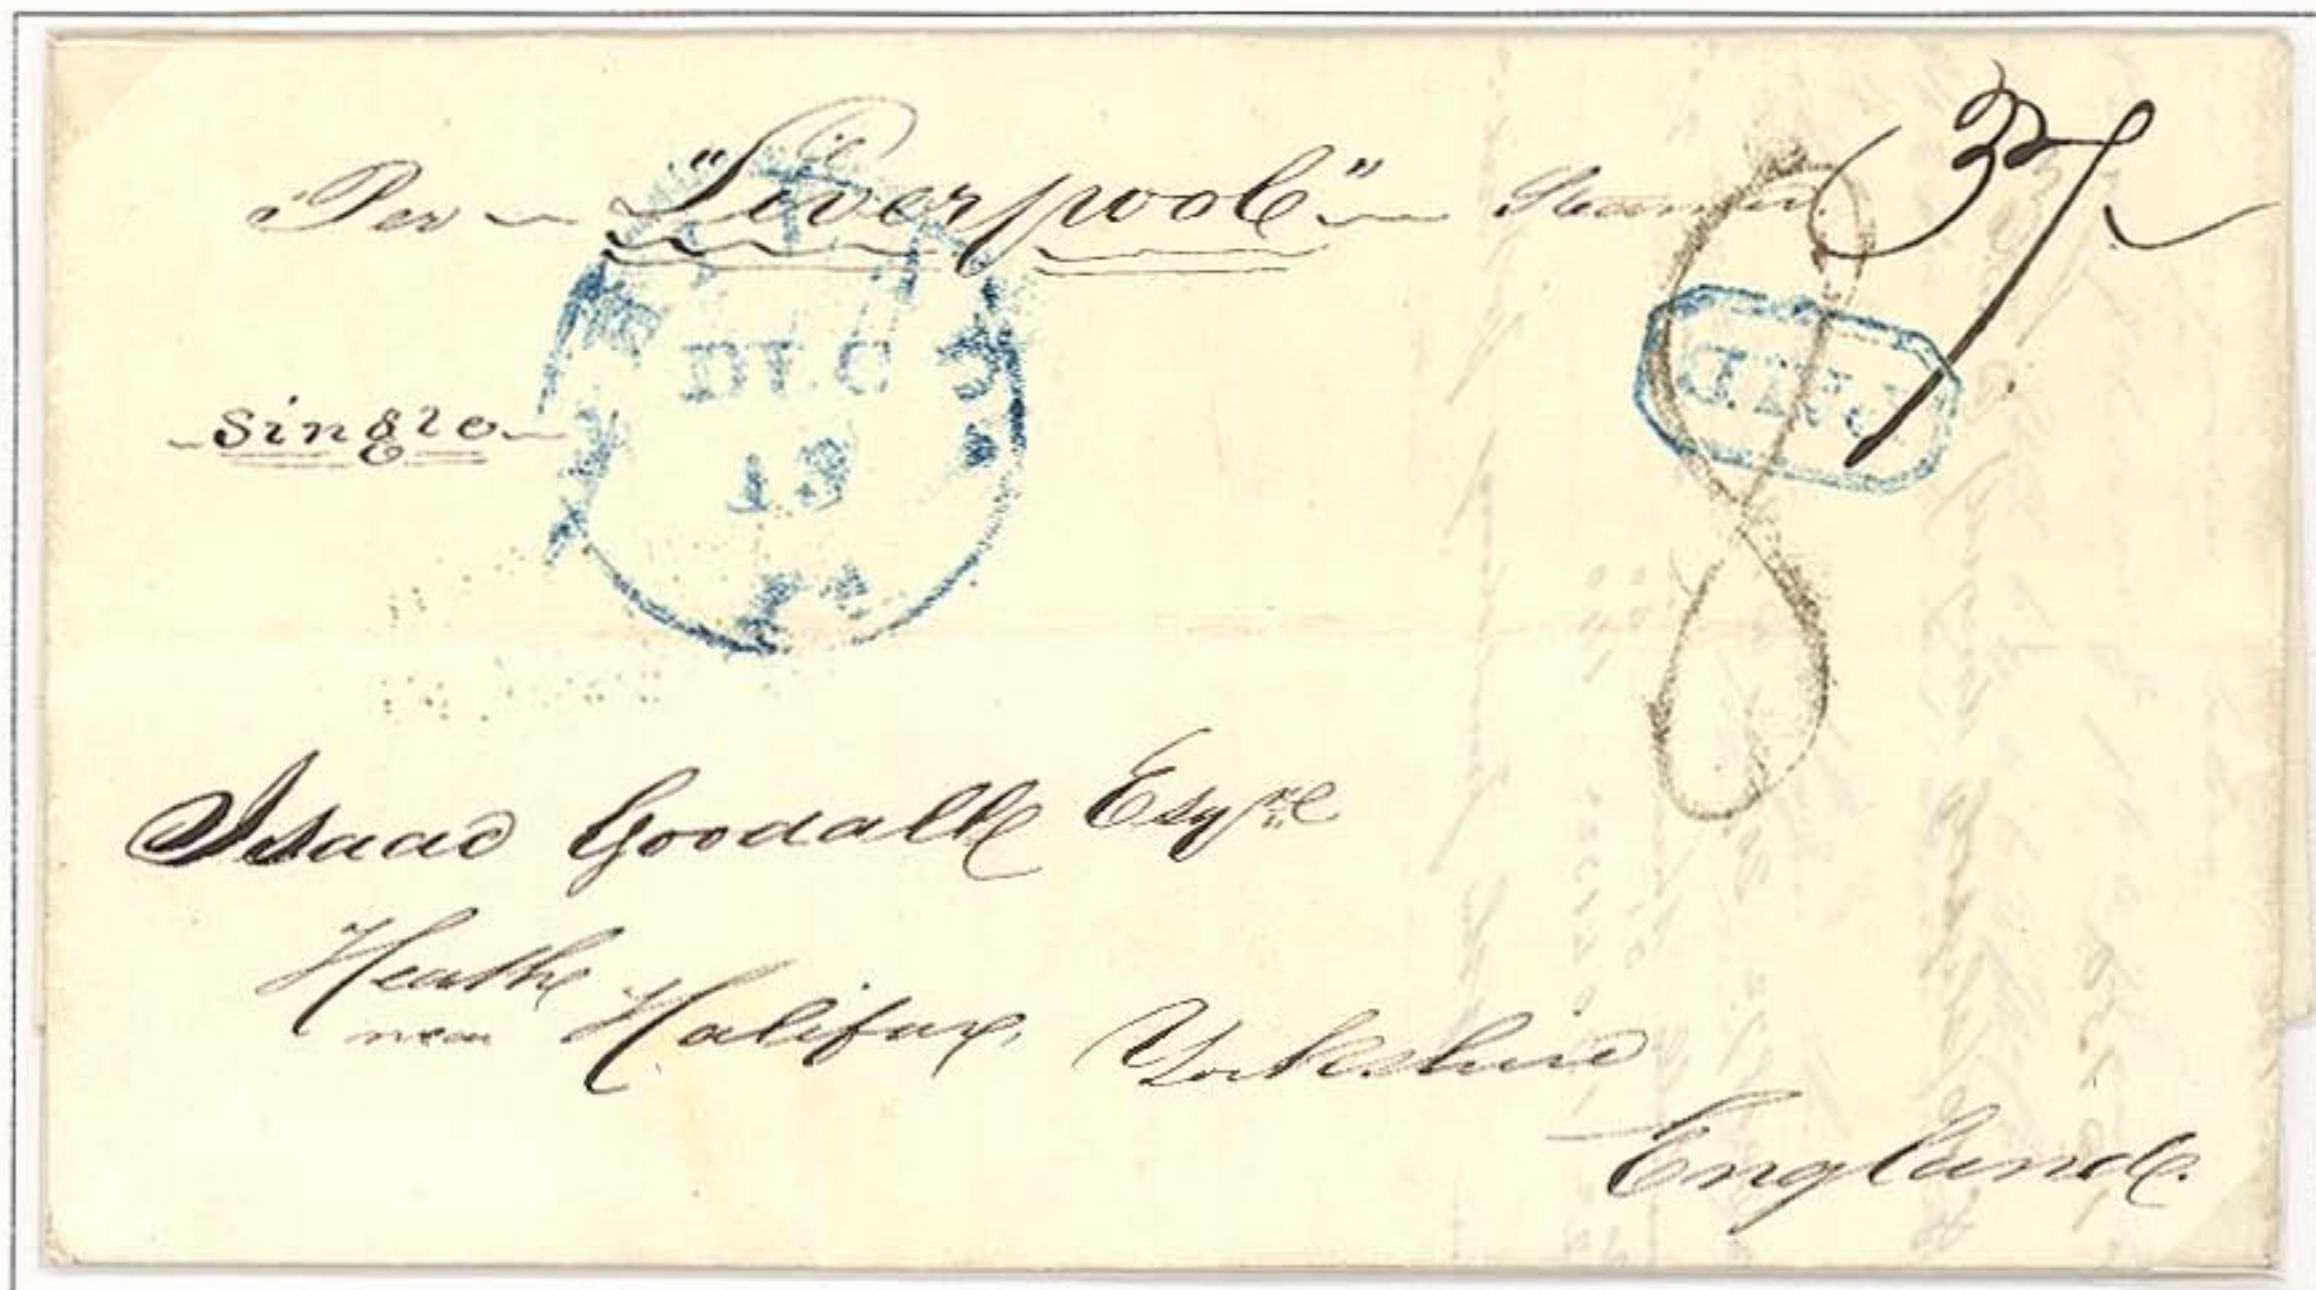 Per "Liverpool" Steamer
37
single
DEC
13
PAID
8
Isaac Goodall Esqre
Heath
near Halifax, Yorkshire
England.